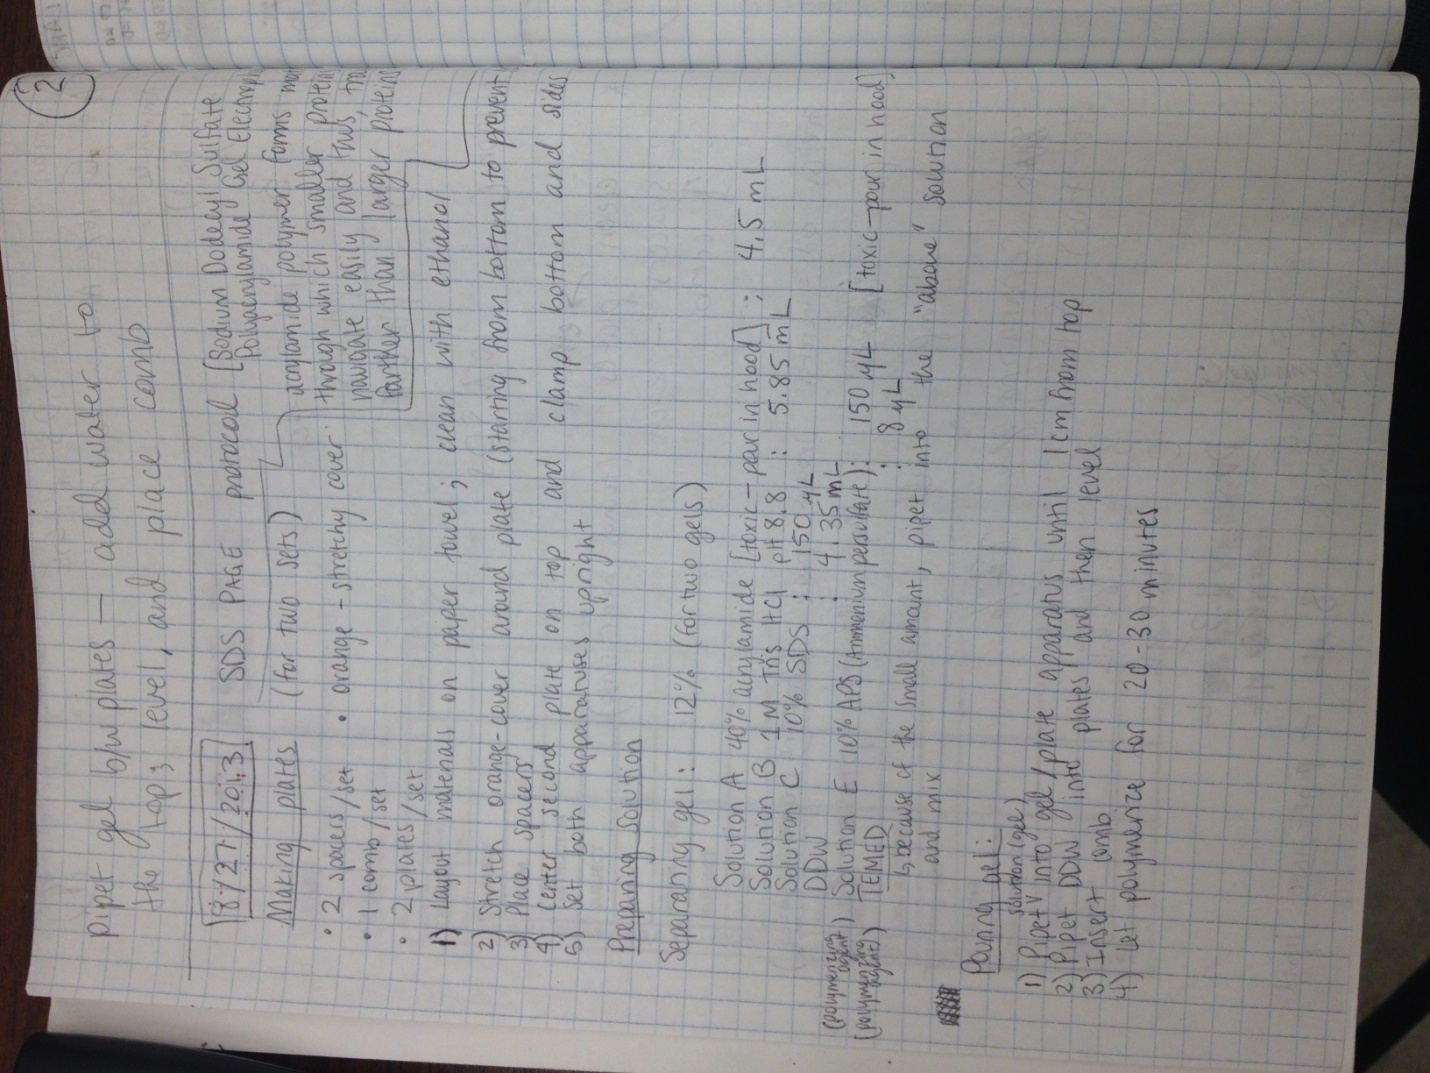 2
pipet gel b/w plates — add water to
the top; level, and place comb
8/27/2013
SDS PAGE protocol [Sodium Dodecyl Sulfate
Polyacrylamide Gel
Making plates (for two sets)
acrylamide polymer forms
through which smaller
navigate easily and thus,
farther than larger proteins
• 2 spacers/set • orange-stretchy cover
• 1 comb/set
• 2 plates/set
1) Layout materials on paper towel; clean with ethanol
2) Stretch orange-cover around plate (starting from bottom to prevent
3) Place spacers
4) Center second plate on top and clamp bottom and sides
5) Set both apparatuses upright
Preparing Solution
Separating gel: 12% (for two gels)
Solution A 40% acrylamide [toxic - pour in hood] : 4.5 mL
Solution B 1M Tris HCl pH 8.8 : 5.85 mL
Solution C 10% SDS : 150 µL
DDW : 4.35 mL
(polymerizing agent) Solution E 10% APS (Ammonium persulfate) : 150 µL [toxic-pour in hood]
(polymerizing agent) TEMED : 8 µL
↳ because of the small amount, pipet into the "above" solution
and mix
Pouring gel:
1) Pipet solution (gel) into gel/plate apparatus until 1 cm from top
2) Pipet DDW into plates and then level
3) Insert comb
4) Let polymerize for 20-30 minutes